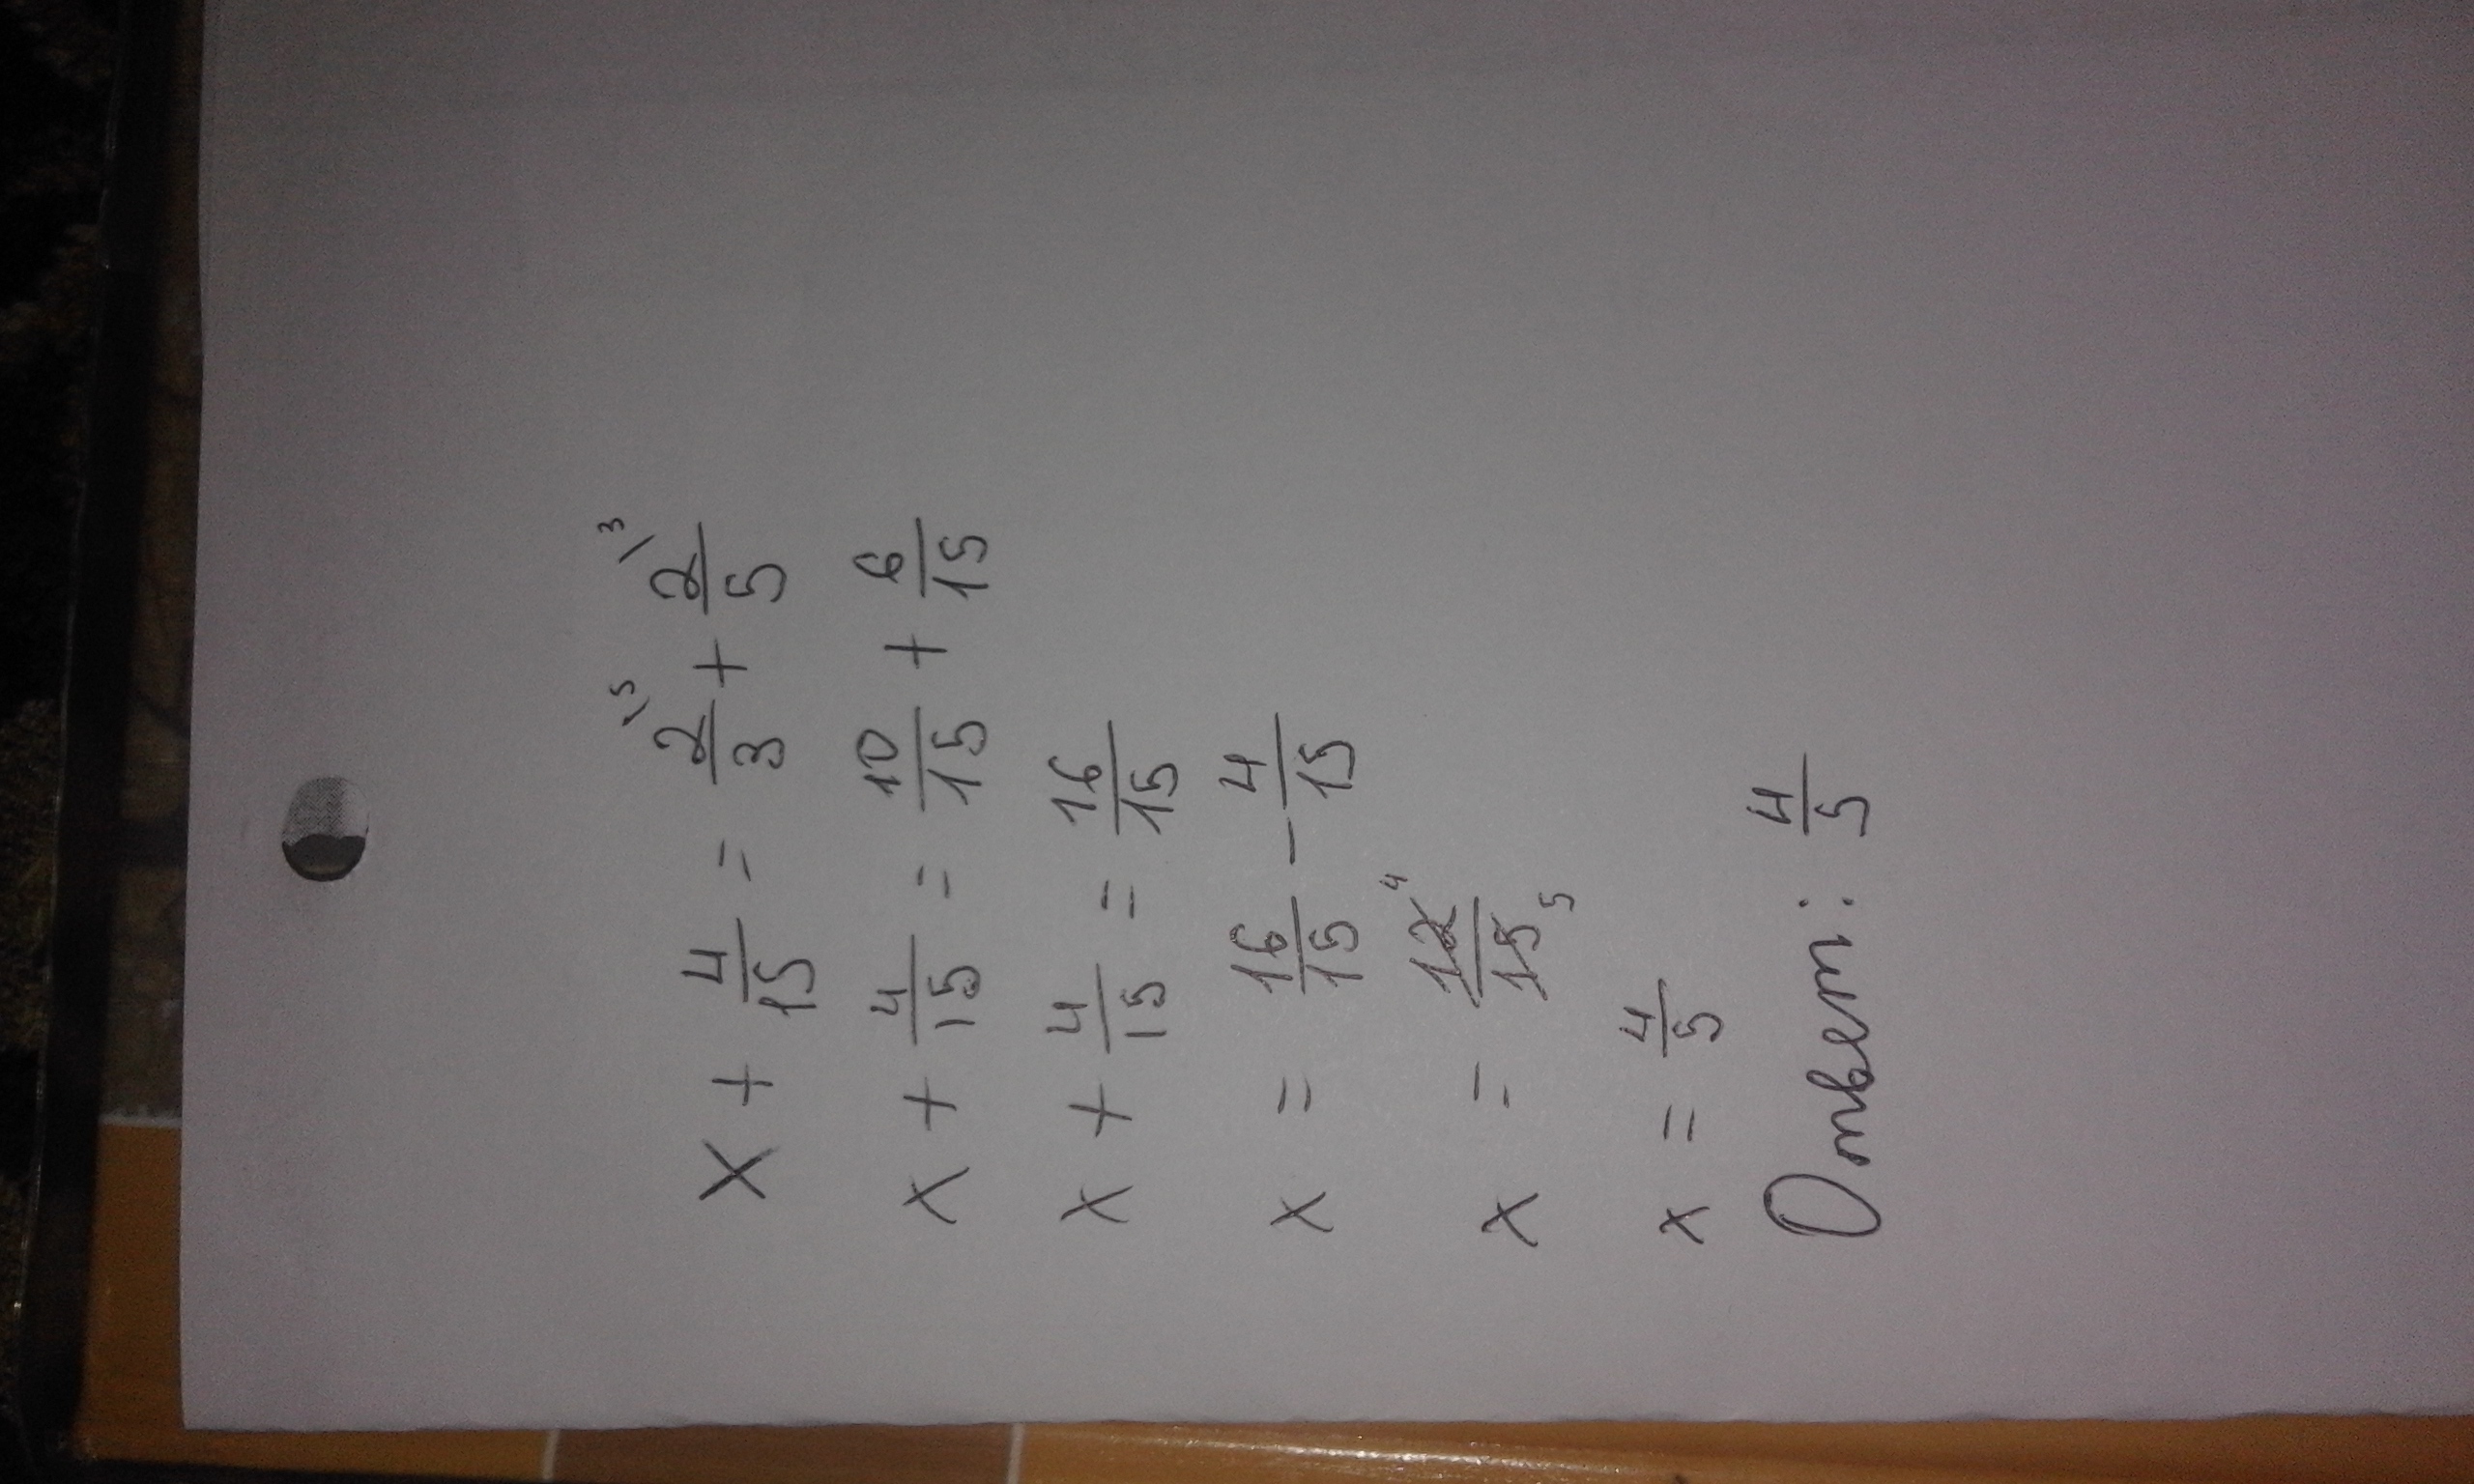 x + 4/15 = 2/3 \5 + 2/5 \3
x + 4/15 = 10/15 + 6/15
x + 4/15 = 16/15
x = 16/15 - 4/15
x = 12/15 4 5
x = 4/5
Ответ: 4/5